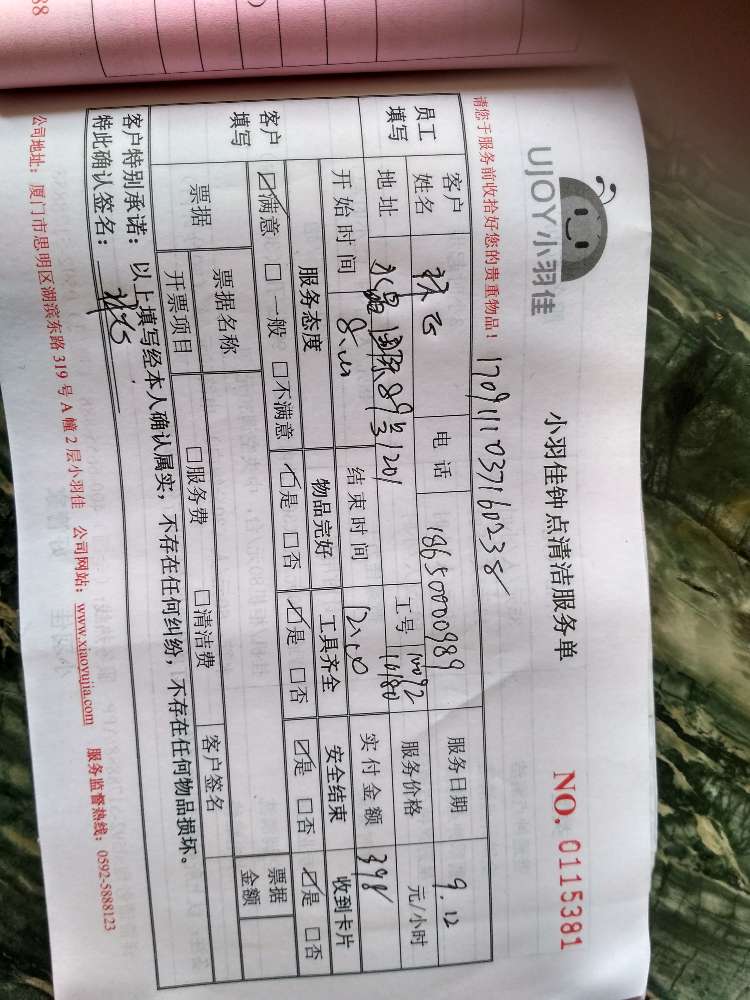 UJOY小羽佳
小羽佳钟点清洁服务单
NO. 0115381
请您于服务前收拾好您的贵重物品！
1709111037160238
员工填写
客户姓名
电话 18650900989
服务日期 9.12
地址
89号1201
工号 10092 10180
服务价格 元/小时
开始时间 8:00
结束时间 12:00
实付金额 398
客户填写
服务态度 物品完好 工具齐全 安全结束 收到卡片
☑满意 □一般 □不满意 ☑是 □否 ☑是 □否 ☑是 □否 ☑是 □否
票据 票据名称 客户签名 票据金额
开票项目 □服务费 □清洁费
客户特别承诺：以上填写经本人确认属实，不存在任何纠纷，不存在任何物品损坏。
特此确认签名：
公司地址：厦门市思明区湖滨东路319号A幢2层小羽佳 公司网站：www.xiaoyujia.com 服务监督热线：0592-5888123